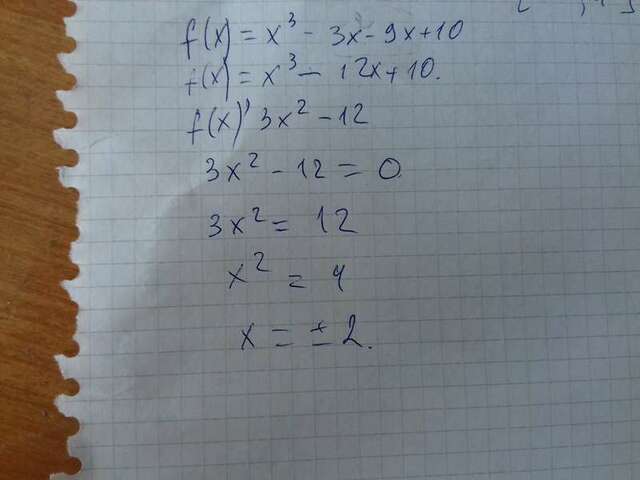 f(x) = x³ - 3x - 9x + 10
f(x) = x³ - 12x + 10.
f(x)' 3x² - 12
3x² - 12 = 0
3x² = 12
x² = 4
x = ± 2.